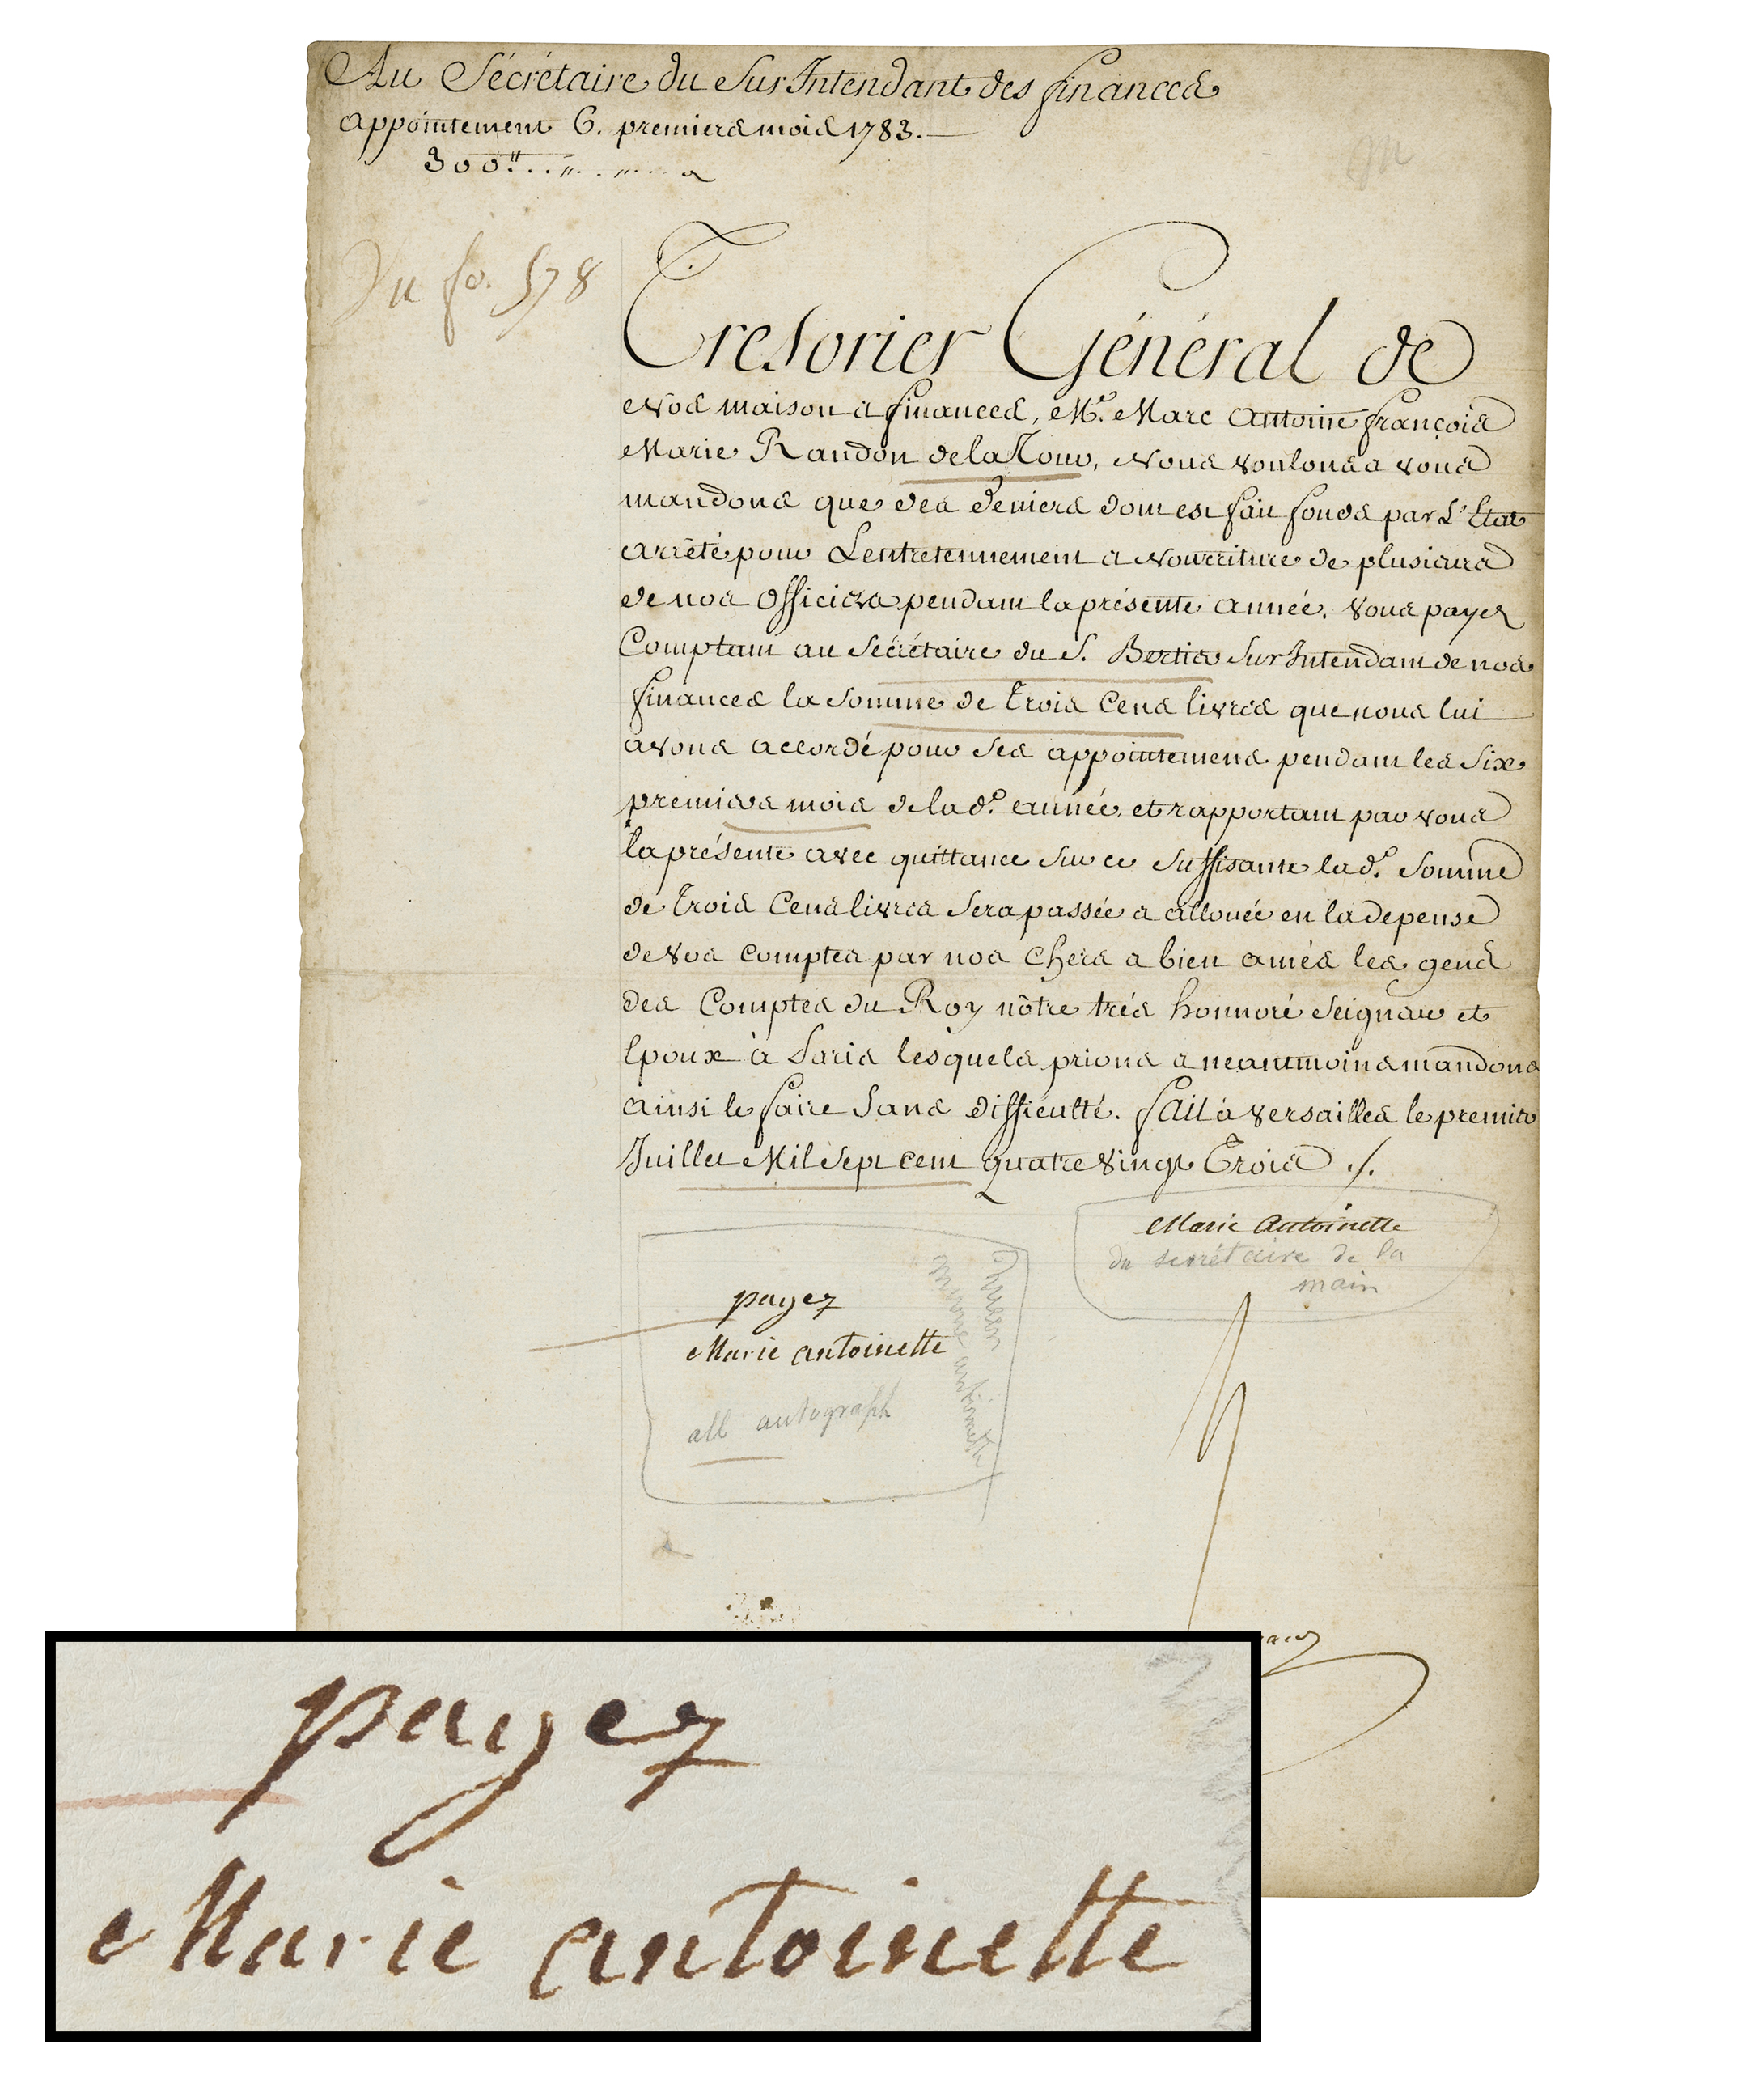 Au Sécrétaire du Sur Intendant des finances
appointement 6. premiers mois 1783.
300
Du fo. 578
Tresorier Général de
Nos maison et finances, Mᵉ. Marc Antoine françois
Marie Randon de la Tour, Nous voulons et vous
mandons que des deniers dont est fait fonds par L'Etat
arrêté pour Lentretennement et Nourriture de plusieurs
de nos Officiers pendant la présente année. Vous payez
Comptant au Sécrétaire du S. Bertier Sur Intendant de nos
finances la Somme de Trois Cens livres que nous lui
avons accordé pour Ses appointemens pendant les Six
premiers mois de la dᵉ. année, et rapportant par vous
la présente avec quittance Sur ce Suffisante la dᵉ. Somme
de Trois Cens livres Sera passée et allouée en la depense
de vos Comptes par nos Chers et bien amés les gens
des Comptes du Roy nôtre trés honnoré Seigneur et
Epoux à Paris lesquels prions et néantmoins mandons
ainsi le faire Sans difficulté. fait à Versailles le premier
Juillet Mil Sept cent quatre Vingt Trois ./.
Marie Antoinette
du secrétaire de la
main
payez
Marie antoinette
all autograph
Queen
Marie Antoinette
payez
Marie antoinette